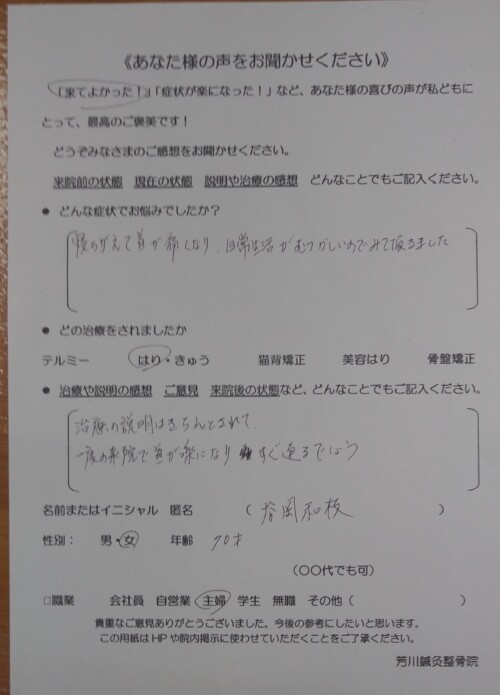 《あなた様の声をお聞かせください》
「来てよかった!」「症状が楽になった!」など、あなた様の喜びの声が私どもに
とって、最高のご褒美です!
どうぞみなさまのご感想をお聞かせください。
来院前の状態 現在の状態 説明や治療の感想 どんなことでもご記入ください。
● どんな症状でお悩みでしたか?
寝ちがえて首が痛くなり、日常生活がむつかしいのでみて頂きました
● どの治療をされましたか
テルミー はり・きゅう 猫背矯正 美容はり 骨盤矯正
● 治療や説明の感想 ご意見 来院後の状態など、どんなことでもご記入ください。
治療の説明はきちんとされて
一度の来院で首が楽になり すぐ
名前またはイニシャル 匿名 ( 岡和枝 )
性別: 男・女 年齢 70才
(〇〇代でも可)
□職業 会社員 自営業 主婦 学生 無職 その他( )
貴重なご意見ありがとうございました。今後の参考にしたいと思います。
この用紙はHPや院内掲示に使わせていただくことをご了承ください。
芳川鍼灸整骨院